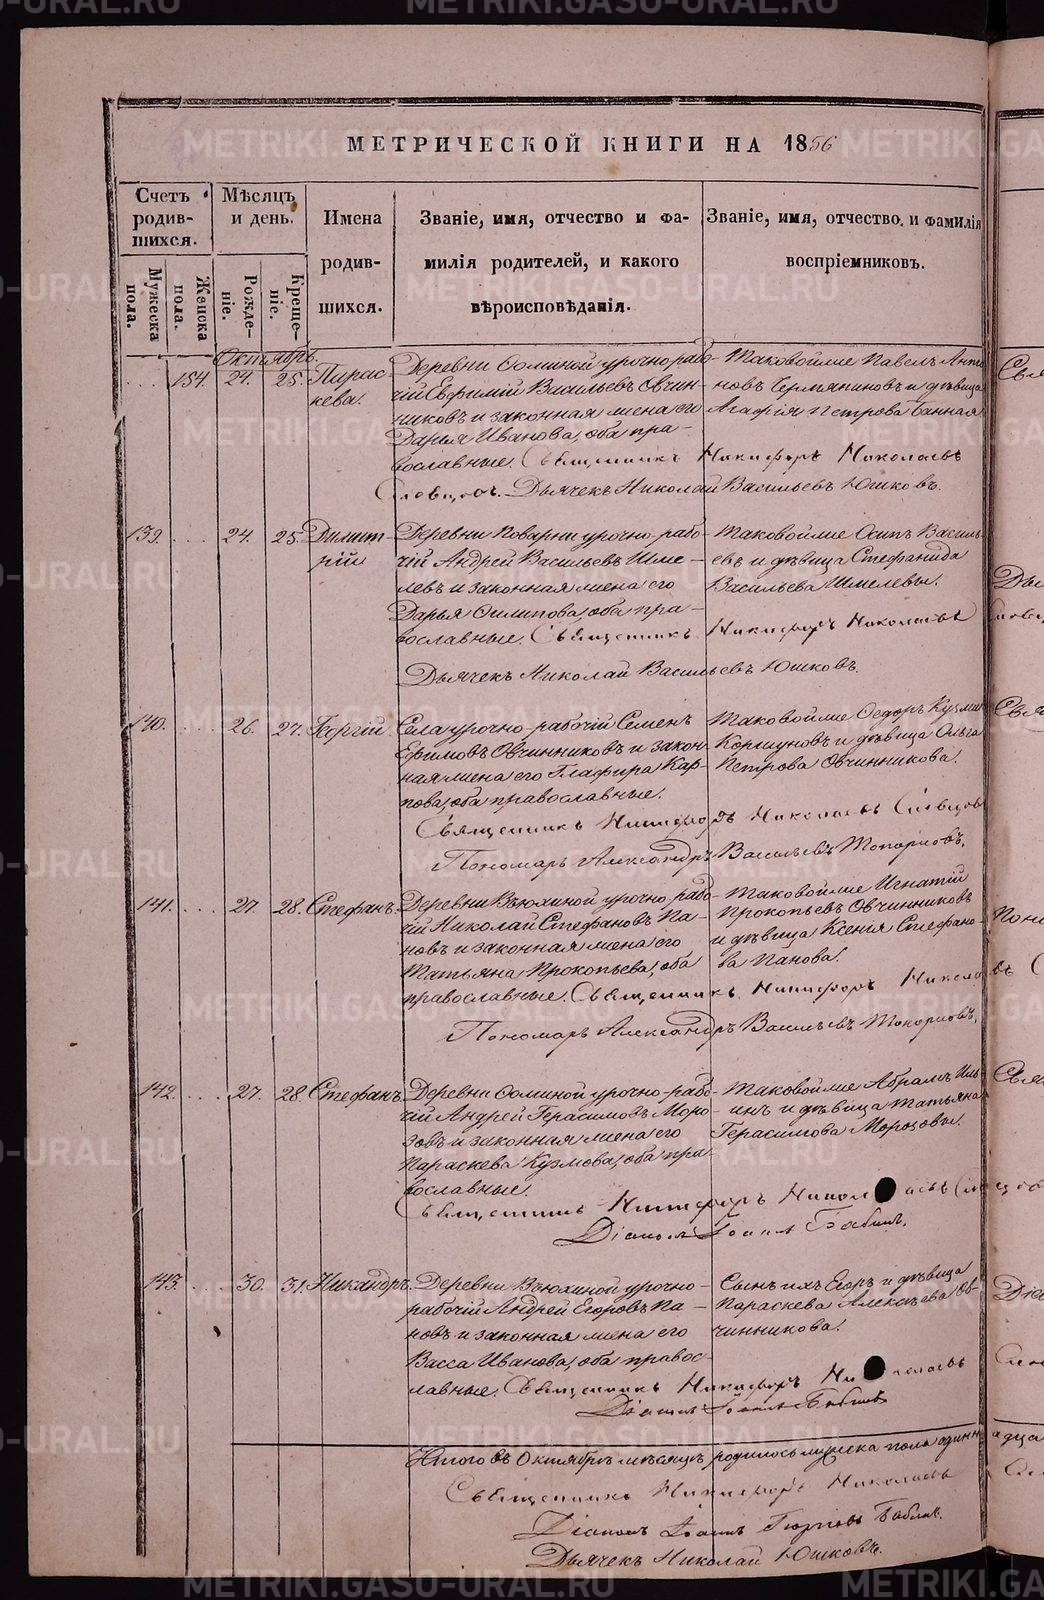 МЕТРИЧЕСКОЙ КНИГИ НА 1856
Счетъ родив-шихся.
Мѣсяцъ и день.
Имена родив-шихся.
Званіе, имя, отчество и фа-
милія родителей, и какого
вѣроисповѣданія.
Званіе, имя, отчество, и фамилія
воспріемниковъ.
Мужеска пола.
Женска пола.
Рожде-ніе.
Креще-ніе.
Октябрь.
154. 24. 25. Парас-
кева.
Деревни Соминой урочно-рабо-
чій Евфимій Васильевъ Овчин-
никовъ и законная жена его
Дарья Иванова, оба пра-
вославные. Священникъ Никифоръ Николаевъ
Словцовъ. Дьячекъ Николай Васильевъ Юшковъ.
Таковойже Павелъ Анти
новъ Чермяниновъ и дѣвица
Агафія Петрова Банная
139. 24. 25. Димит-
рій
Деревни Поварни урочно-рабо-
чій Андрей Васильевъ Шме-
левъ и законная жена его
Дарья Филипова, оба пра-
вославные. Священникъ Никифоръ Николаевъ
Дьячекъ Николай Васильевъ Юшковъ.
Таковойже Осипъ Василь-
евъ и дѣвица Стефанида
Васильева Шмелевы.
140. 26. 27. Георгій
Села урочно-рабочій Семенъ
Ефимовъ Овчинниковъ и закон-
ная жена его Глафира Кар-
пова, оба православные.
Таковойже Федоръ Кузмин
Коршуновъ и дѣвица Ольга
Петрова Овчинникова.
Священникъ Никифоръ Николаевъ Словцовъ
Пономарь Александръ Васильевъ Топорковъ.
141. 27. 28. Стефанъ.
Деревни Вьюхиной урочно рабо-
чій Николай Стефановъ Па-
новъ и законная жена его
Татьяна Прокопьева, оба
православные. Священникъ Никифоръ Николаевъ
Пономарь Александръ Васильевъ Топорковъ.
Таковойже Игнатій
Прокопьевъ Овчинниковъ
и дѣвица Ксенія Стефано-
ва Панова.
142. 27. 28. Стефанъ
Деревни Соминой урочно-рабо-
чій Андрей Герасимовъ Моро-
зовъ и законная жена его
Параскева Кузмова, оба пра-
вославные.
Таковойже Абрамъ Иль-
инъ и дѣвица Татьяна
Герасимова Морозовы.
Священникъ Никифоръ Николаевъ
Діаконъ Іоаннъ Бабинъ.
143. 30. 31. Никандръ.
Деревни Вьюхиной урочно-
рабочій Андрей Егоровъ Па-
новъ и законная жена его
Васса Иванова, оба правос-
лавные. Священникъ Никифоръ Николаевъ
Діаконъ Іоаннъ Бабинъ
Сынъ ихъ Егоръ и дѣвица
Параскева Алексѣева Ов-
чинникова.
Итого въ Октябрѣ мѣсяцѣ родилось мужеска пола одинн
Священникъ Никифоръ Николаевъ
Діаконъ Іоаннъ Георгіевъ Бабинъ.
Дьячекъ Николай Юшковъ.
METRIKI.GASO-URAL.RU